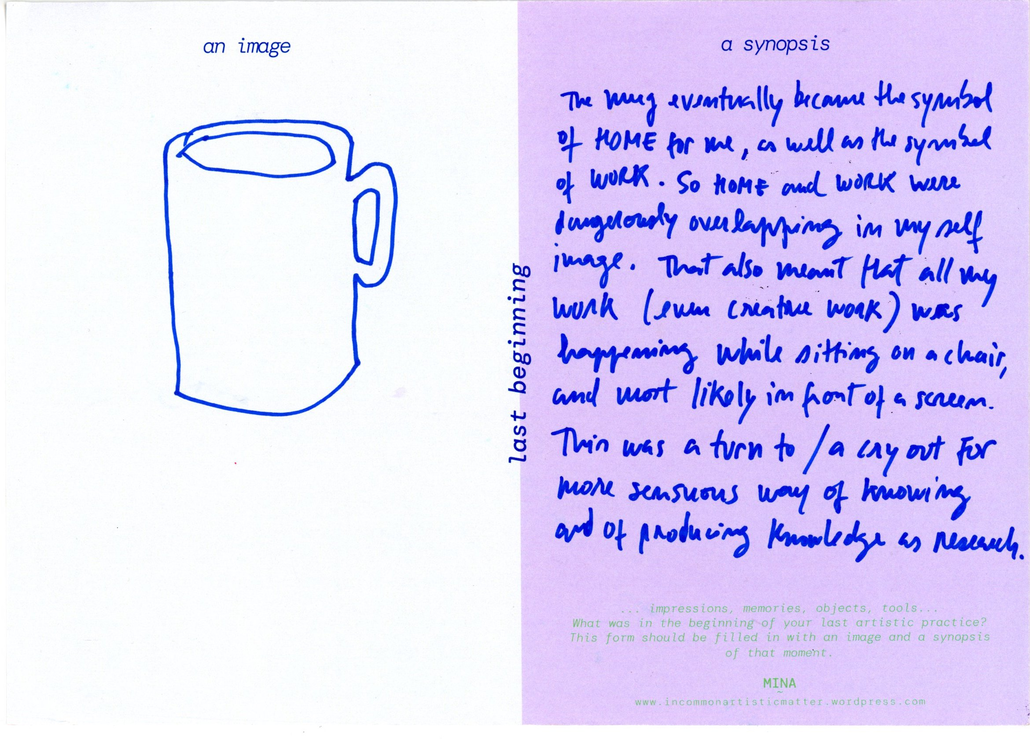 an image
last beginning
a synopsis
The mug eventually became the symbol
of HOME for me, as well as the symbol
of WORK. So HOME and WORK were
dangerously overlapping in my self
image. That also meant that all my
work (even creative work) was
happening while sitting on a chair,
and most likely in front of a screen.
This was a turn to / a cry out for
more sensuous way of knowing
and of producing knowledge as research.
... impressions, memories, objects, tools...
What was in the beginning of your last artistic practice?
This form should be filled in with an image and a synopsis
of that moment.
MINA
www.incommonartisticmatter.wordpress.com